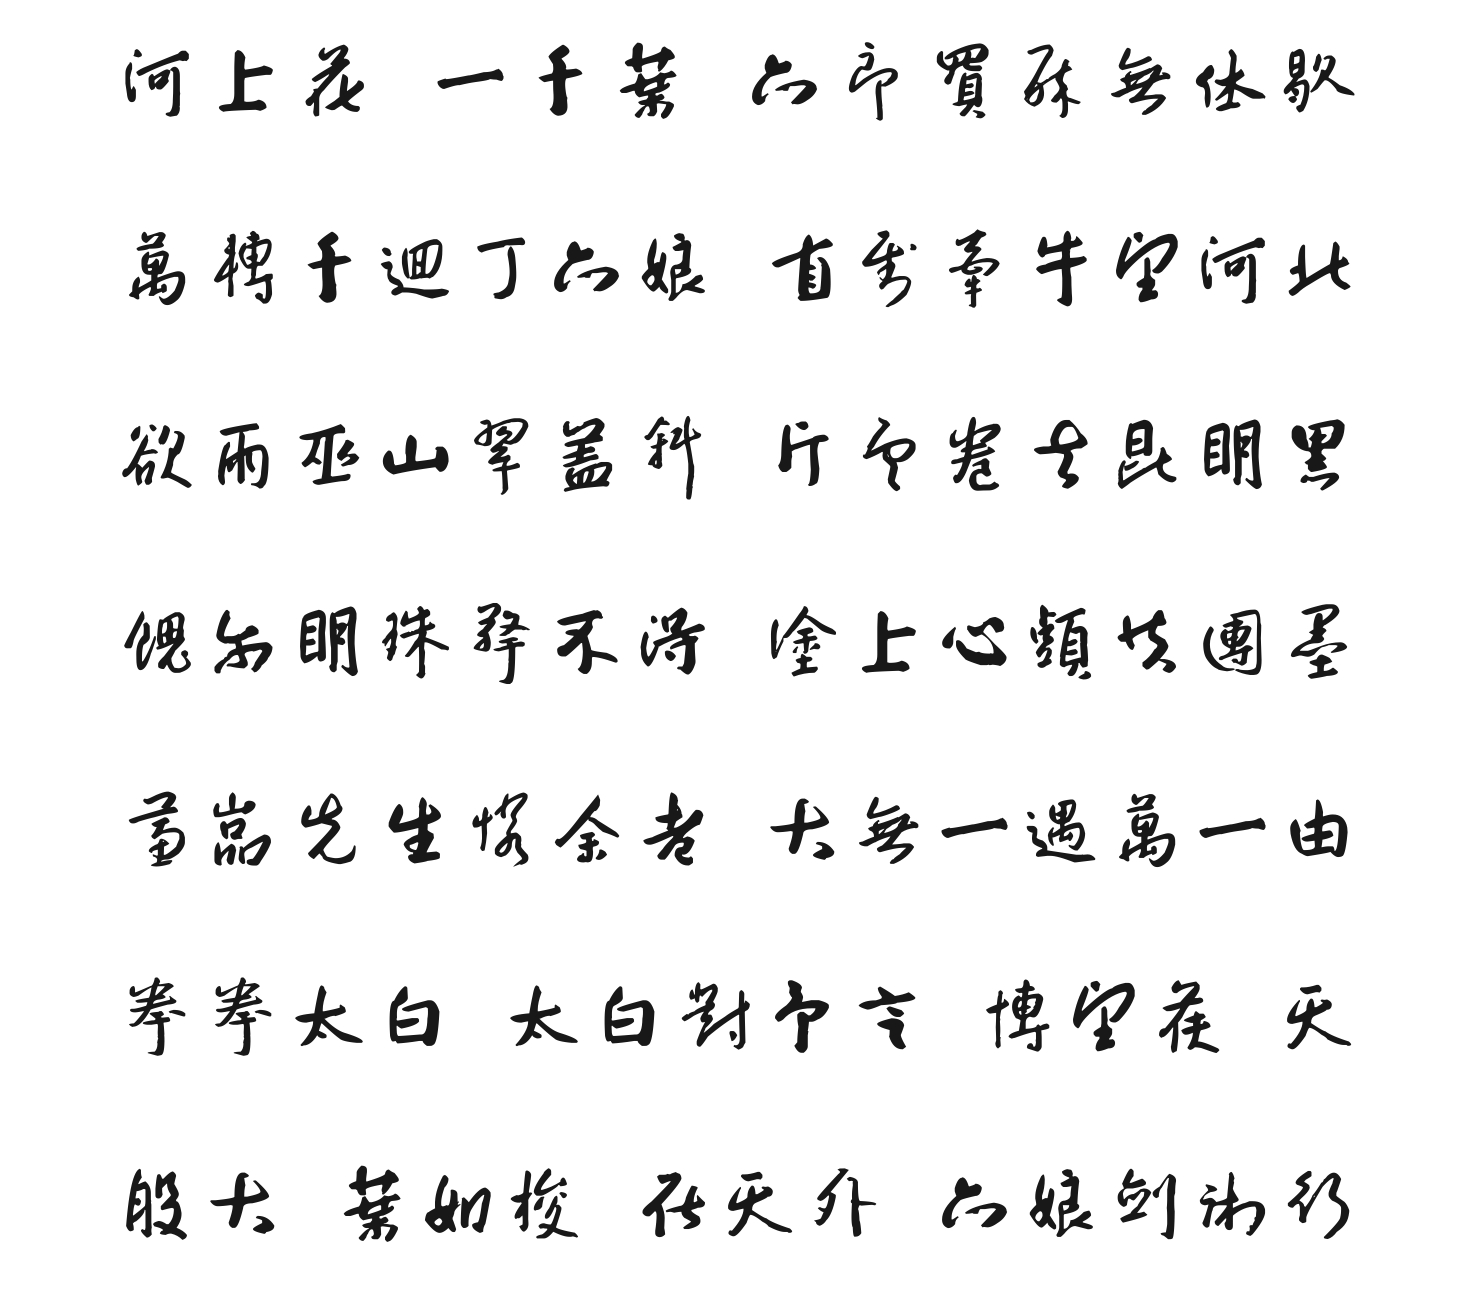 河上花 一千葉 六郎買醉無休歇
萬轉千迴丁六娘 直到牽牛望河北
欲雨巫山翠盖斜 片雲卷去昆明黑
餽尔明珠擎不得 塗上心頭共團墨
蕙嵒先生憐余老 大無一遇萬一由
拳拳太白 太白對予言 博望侯 天
般大 葉如梭 在天外 六娘劍術行